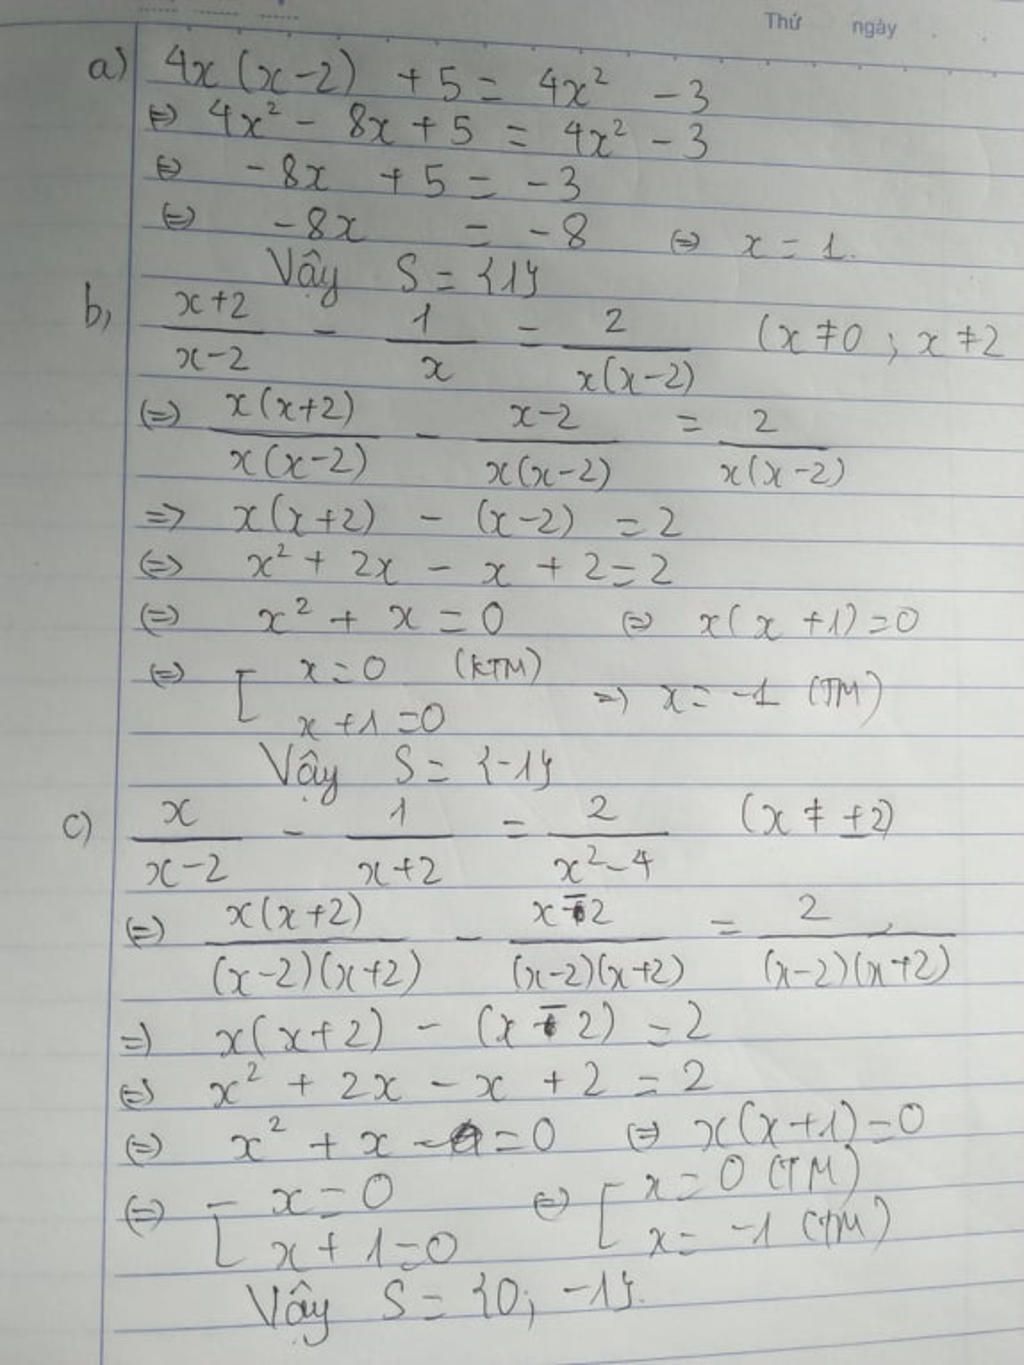 Thứ ngày
a) 4x(x-2) + 5 = 4x² - 3
⇔ 4x² - 8x + 5 = 4x² - 3
⇔ -8x + 5 = -3
⇔ -8x = -8 ⇔ x = 1.
Vậy S = {1}
b, (x+2)/(x-2) - 1/x = 2/(x(x-2)) (x ≠ 0 ; x ≠ 2
⇔ x(x+2)/(x(x-2)) - (x-2)/(x(x-2)) = 2/(x(x-2))
⇒ x(x+2) - (x-2) = 2
⇔ x² + 2x - x + 2 = 2
⇔ x² + x = 0 ⇔ x(x+1) = 0
⇔ [ x = 0 (KTM)
x + 1 = 0 ⇒ x = -1 (TM)
Vậy S = {-1}
c) x/(x-2) - 1/(x+2) = 2/(x²-4) (x ≠ ±2)
⇔ x(x+2)/((x-2)(x+2)) - (x-2)/((x-2)(x+2)) = 2/((x-2)(x+2))
⇒ x(x+2) - (x-2) = 2
⇔ x² + 2x - x + 2 = 2
⇔ x² + x = 0 ⇔ x(x+1) = 0
⇔ [ x = 0 ⇔ [ x = 0 (TM)
x + 1 = 0 x = -1 (TM)
Vậy S = {0; -1}.